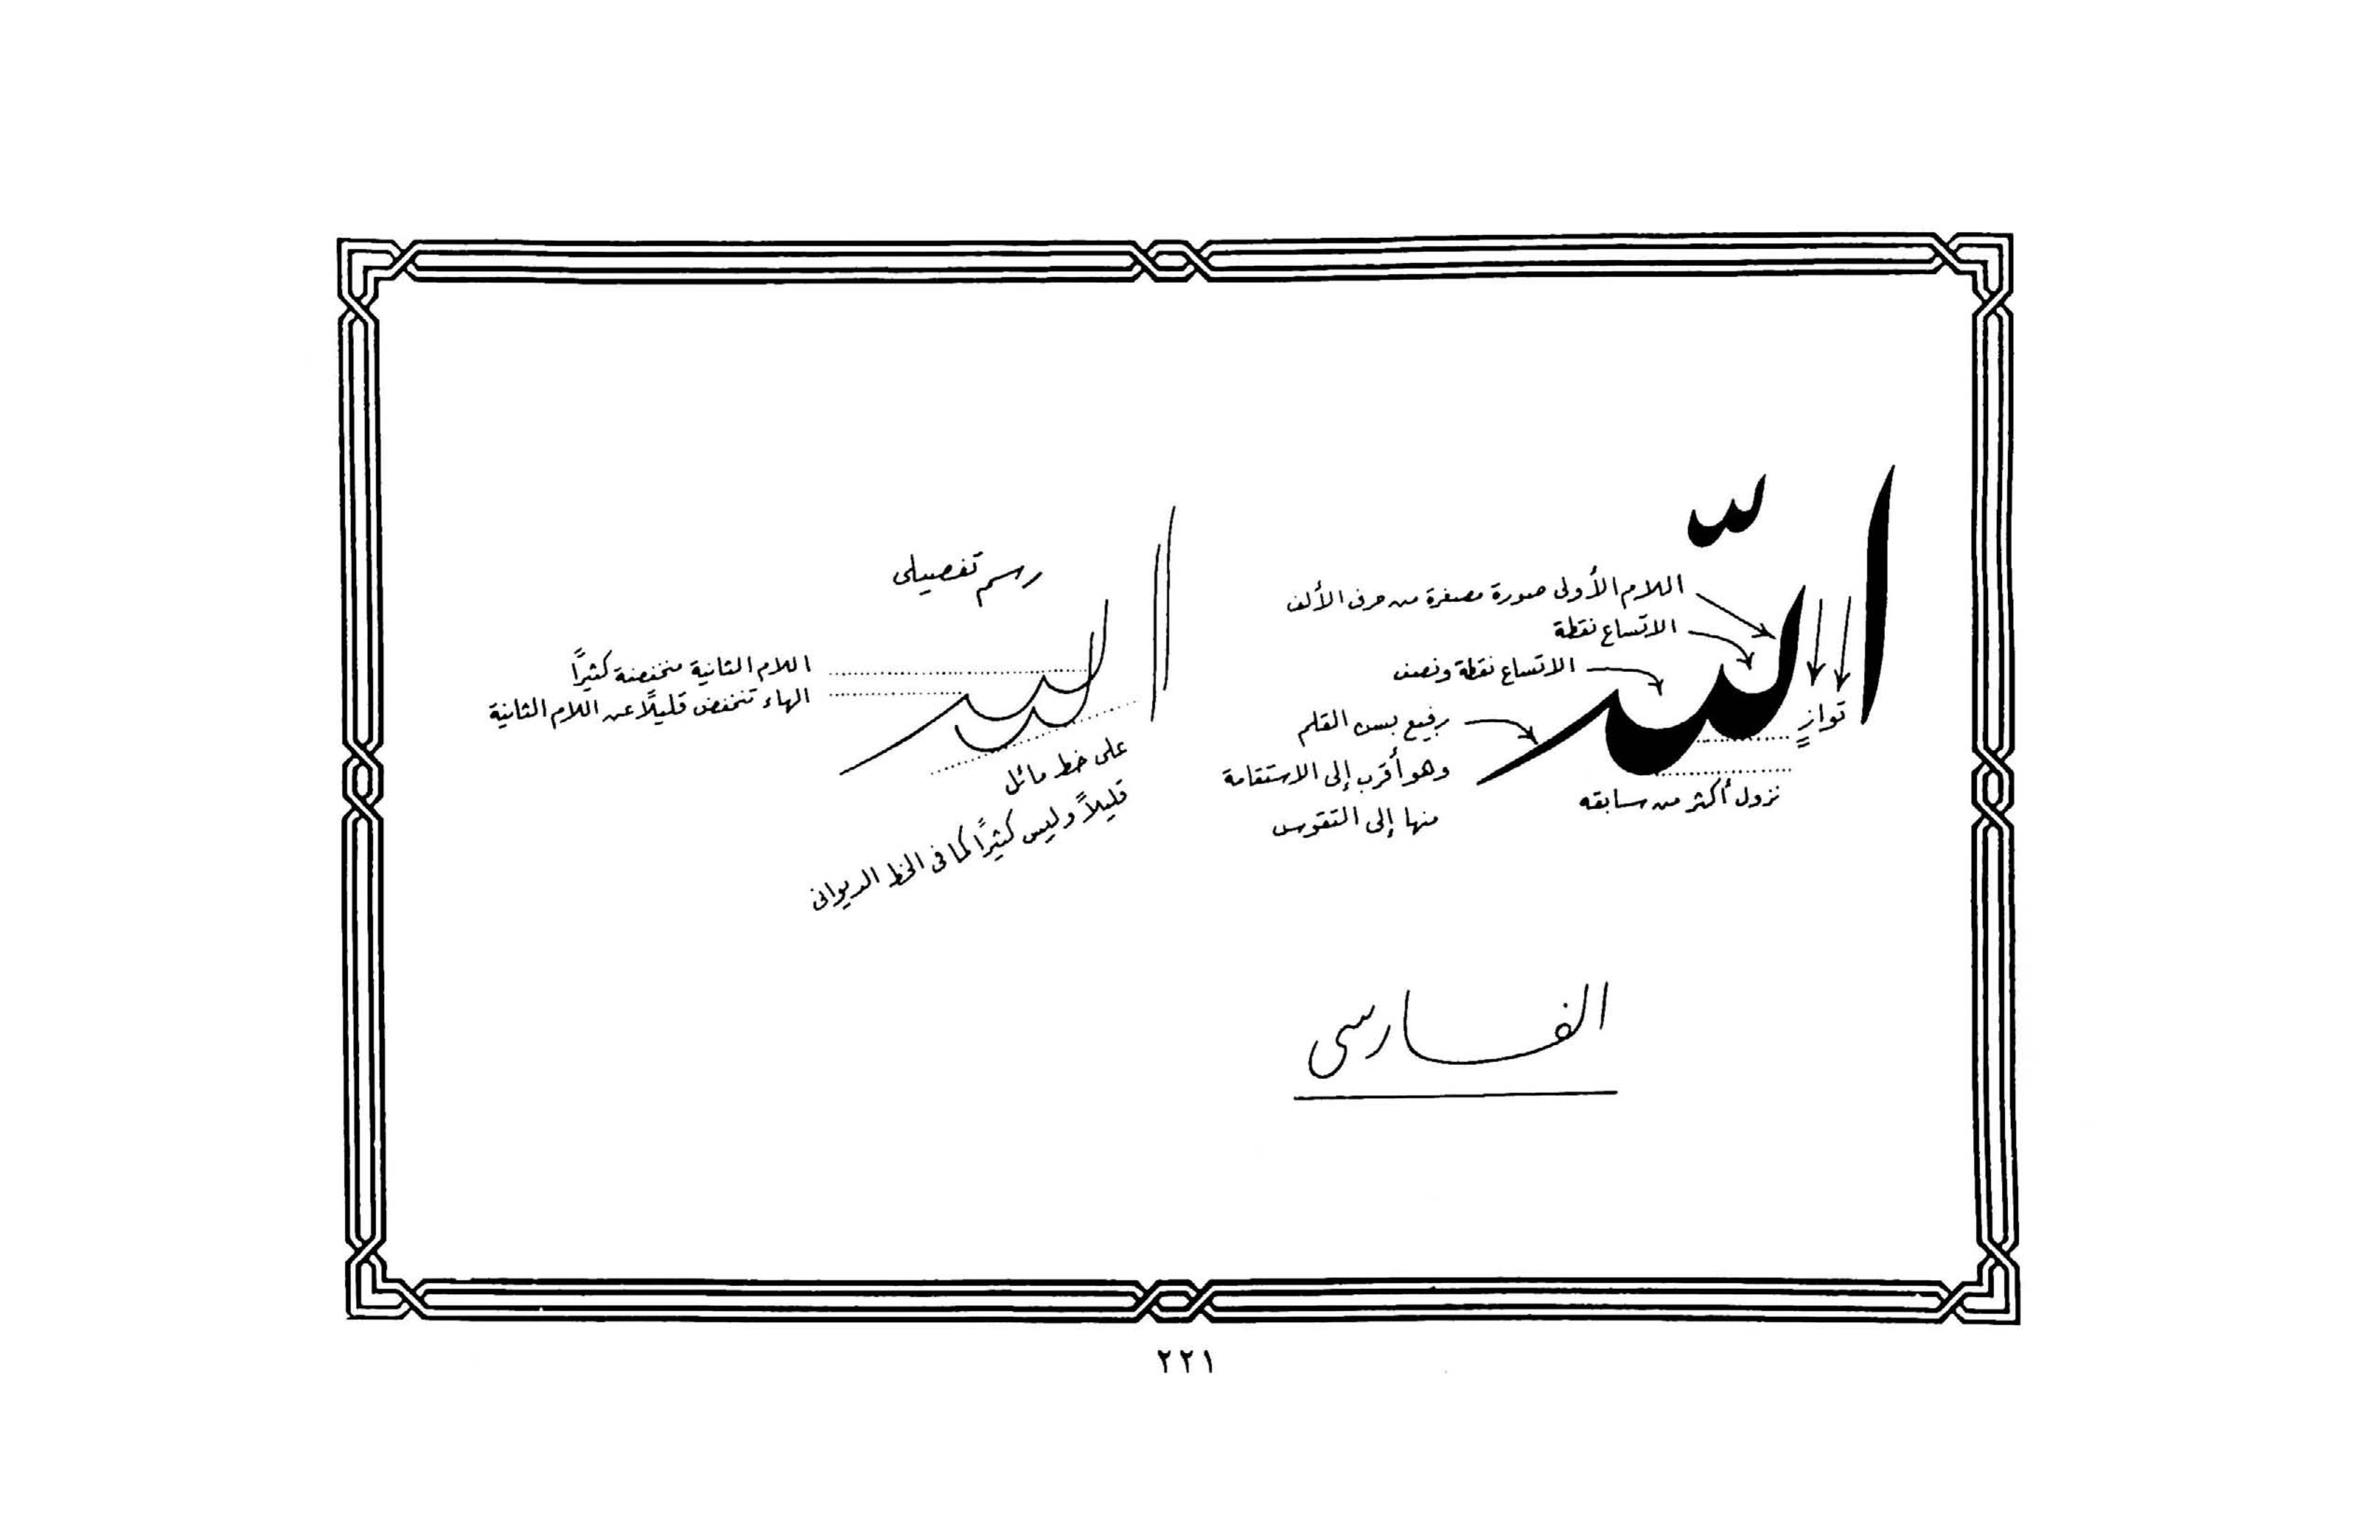 اللّه
اللام الأولى صورة مصغرة من حرف الألف
الاتساع نقطة
الاتساع نقطة ونصف
توازٍ
رفيع بسن القلم
وهو أقرب إلى الاستقامة
منها إلى التقوس
نزول أكثر من سابقه
رسم تفصيلى
الله
اللام الثانية منخفضة كثيرًا
الهاء تنخفض قليلًا عن اللام الثانية
على خط مائل
قليلًا وليس كثيرًا كما فى الخط الديوانى
الفارسى
٢٢١